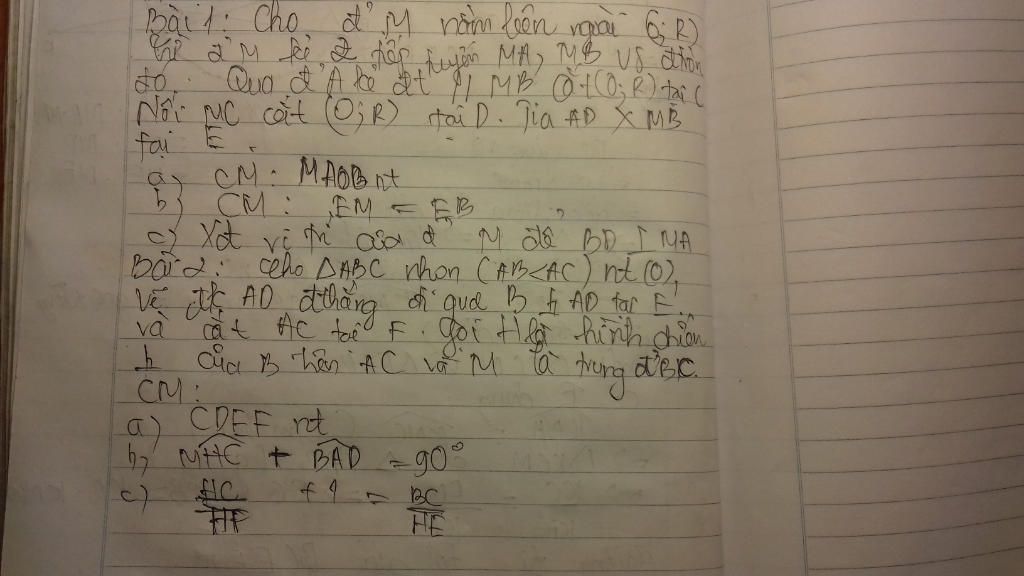 Bài 1: Cho đ' M nằm bên ngoài (O;R)
Từ đ' M kẻ 2 tiếp tuyến MA, MB với đtròn
đó. Qua đ' A kẻ đt // MB cắt (O;R) tại C
Nối MC cắt (O;R) tại D. Tia AD X MB
tại E.
a) CM: MAOB nt
b) CM: EM = EB
c) Xđ vị trí của đ' M để BD ⊥ MA
Bài 2: Cho ΔABC nhọn (AB<AC) nt (O),
vẽ đk AD đthẳng đi qua B ⊥ AD tại E
và cắt AC tại F. Gọi H là hình chiếu
⊥ của B trên AC và M là trung đ' BC.
CM:
a) CDEF nt
b) MHC + BAD = 90°
c) HC/HF + 1 = BC/HE